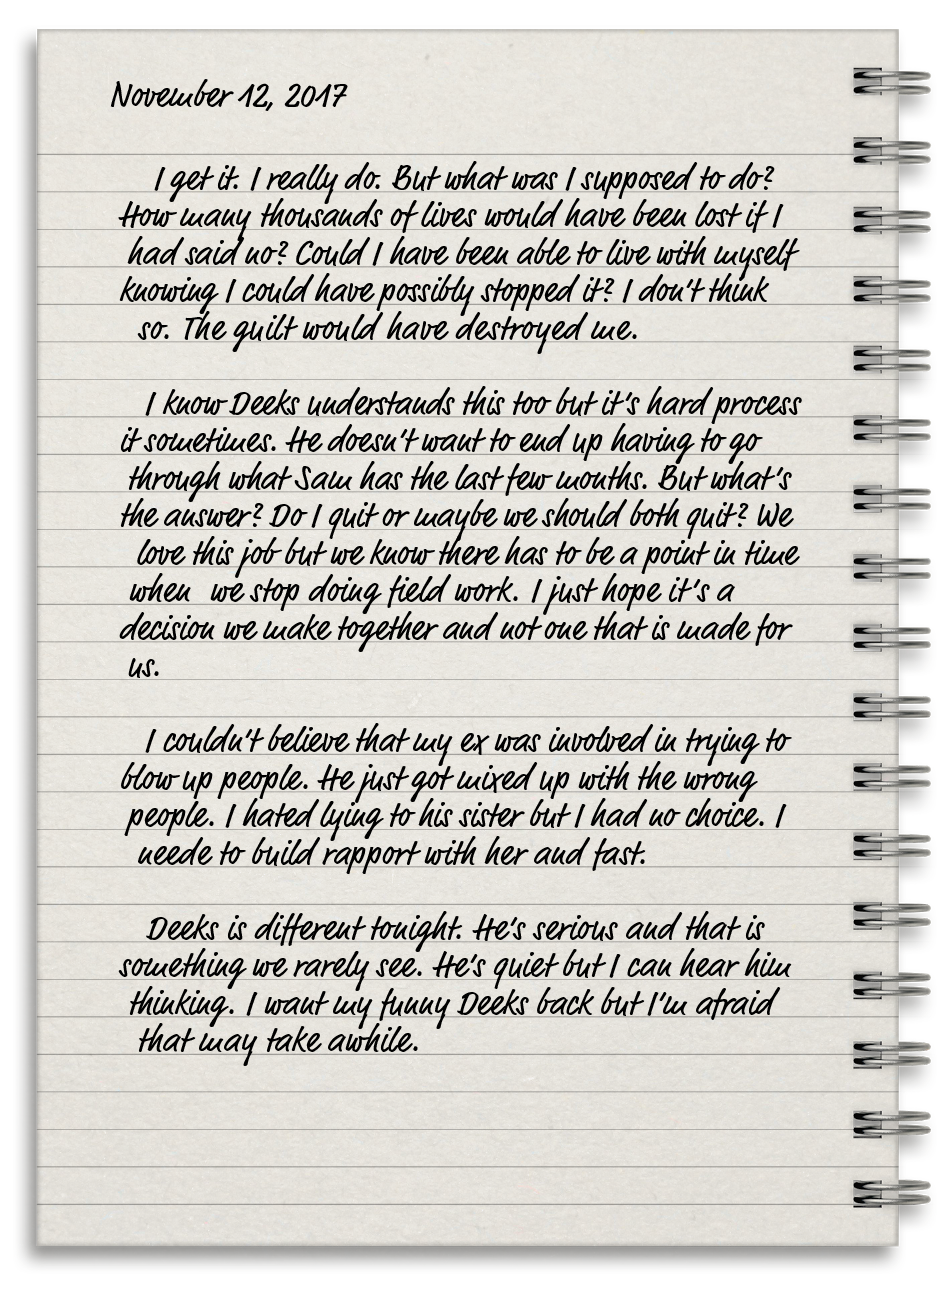 November 12, 2017
I get it. I really do. But what was I supposed to do?
How many thousands of lives would have been lost if I
had said no? Could I have been able to live with myself
knowing I could have possibly stopped it? I don't think
so. The guilt would have destroyed me.
I know Deeks understands this too but it's hard process
it sometimes. He doesn't want to end up having to go
through what Sam has the last few months. But what's
the answer? Do I quit or maybe we should both quit? We
love this job but we know there has to be a point in time
when we stop doing field work. I just hope it's a
decision we make together and not one that is made for
us.
I couldn't believe that my ex was involved in trying to
blow up people. He just got mixed up with the wrong
people. I hated lying to his sister but I had no choice. I
neede to build rapport with her and fast.
Deeks is different tonight. He's serious and that is
something we rarely see. He's quiet but I can hear him
thinking. I want my funny Deeks back but I'm afraid
that may take awhile.